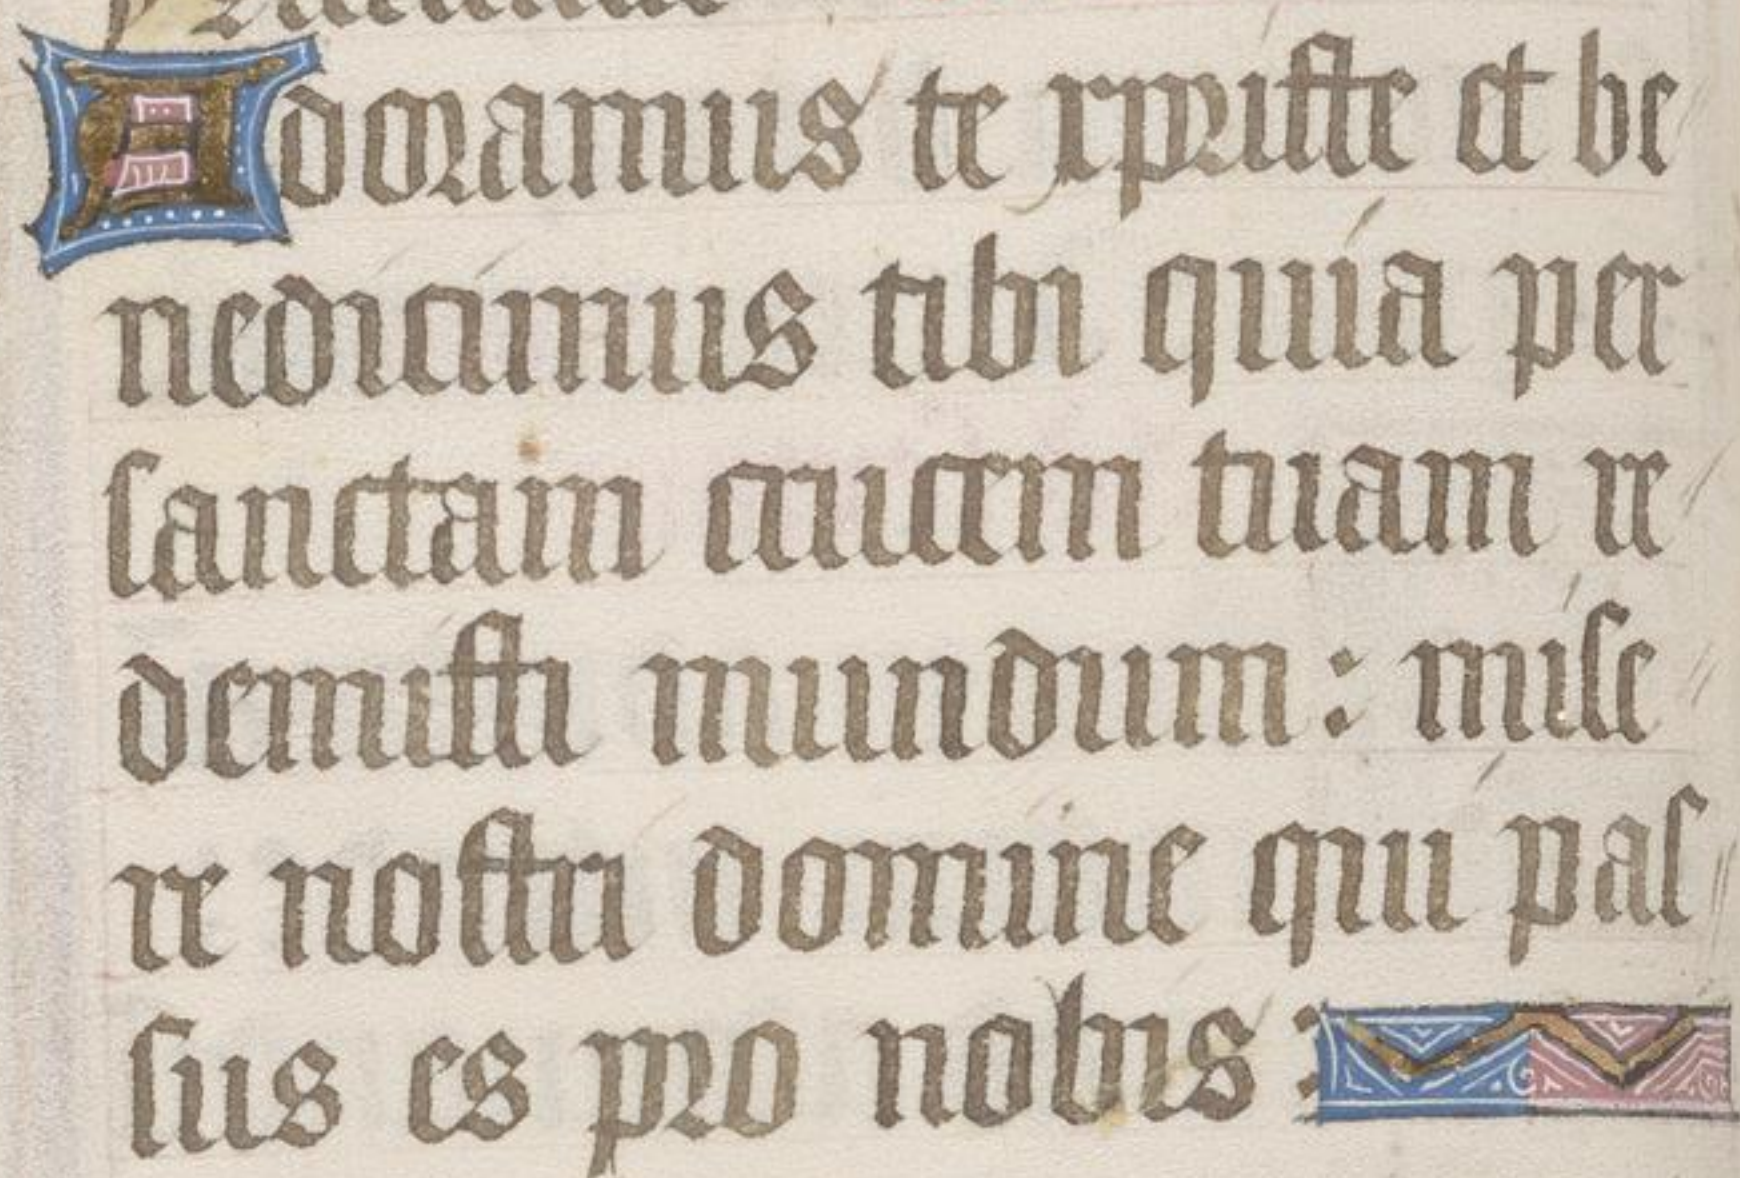 Adoramus te xpriste et be
nedicimus tibi quia per
sanctam crucem tuam re
demisti mundum : mise
re nostri domine qui pas
sus es pro nobis :